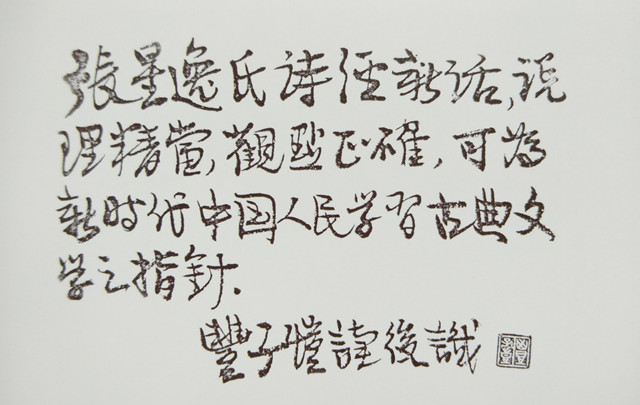 張星逸氏诗经新话,说
理精當,觀點正確,可為
新時代中国人民学習古典文
学之指針.
豐子愷讀後識